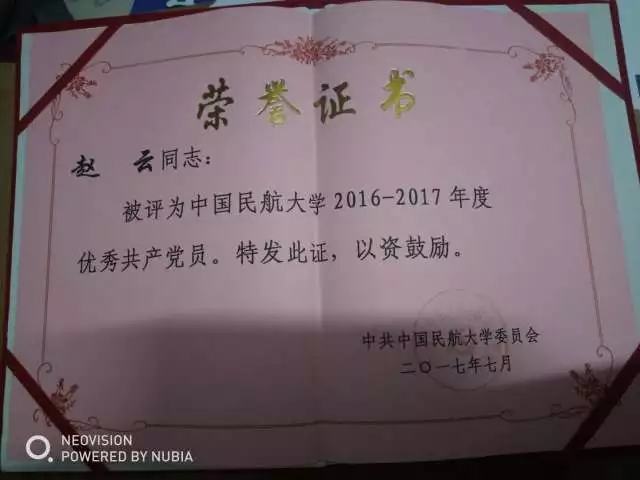 荣誉证书
赵 云同志：
被评为中国民航大学2016-2017年度
优秀共产党员。特发此证，以资鼓励。
中共中国民航大学委员会
二〇一七年七月
NEOVISION
POWERED BY NUBIA